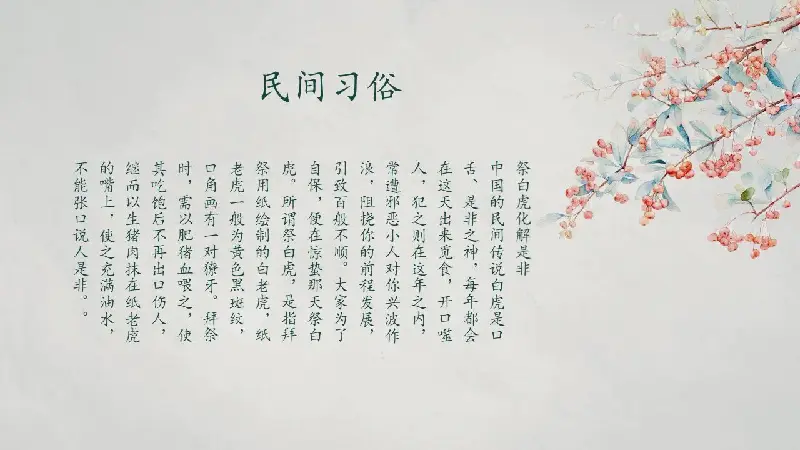 民间习俗
祭白虎化解是非
中国的民间传说白虎是口
舌、是非之神，每年都会
在这天出来觅食，开口噬
人，犯之则在这年之内，
常遭邪恶小人对你兴波作
浪，阻挠你的前程发展，
引致百般不顺。大家为了
自保，便在惊蛰那天祭白
虎。所谓祭白虎，是指拜
祭用纸绘制的白老虎，纸
老虎一般为黄色黑斑纹，
口角画有一对獠牙。拜祭
时，需以肥猪血喂之，使
其吃饱后不再出口伤人，
继而以生猪肉抹在纸老虎
的嘴上，使之充满油水，
不能张口说人是非。。